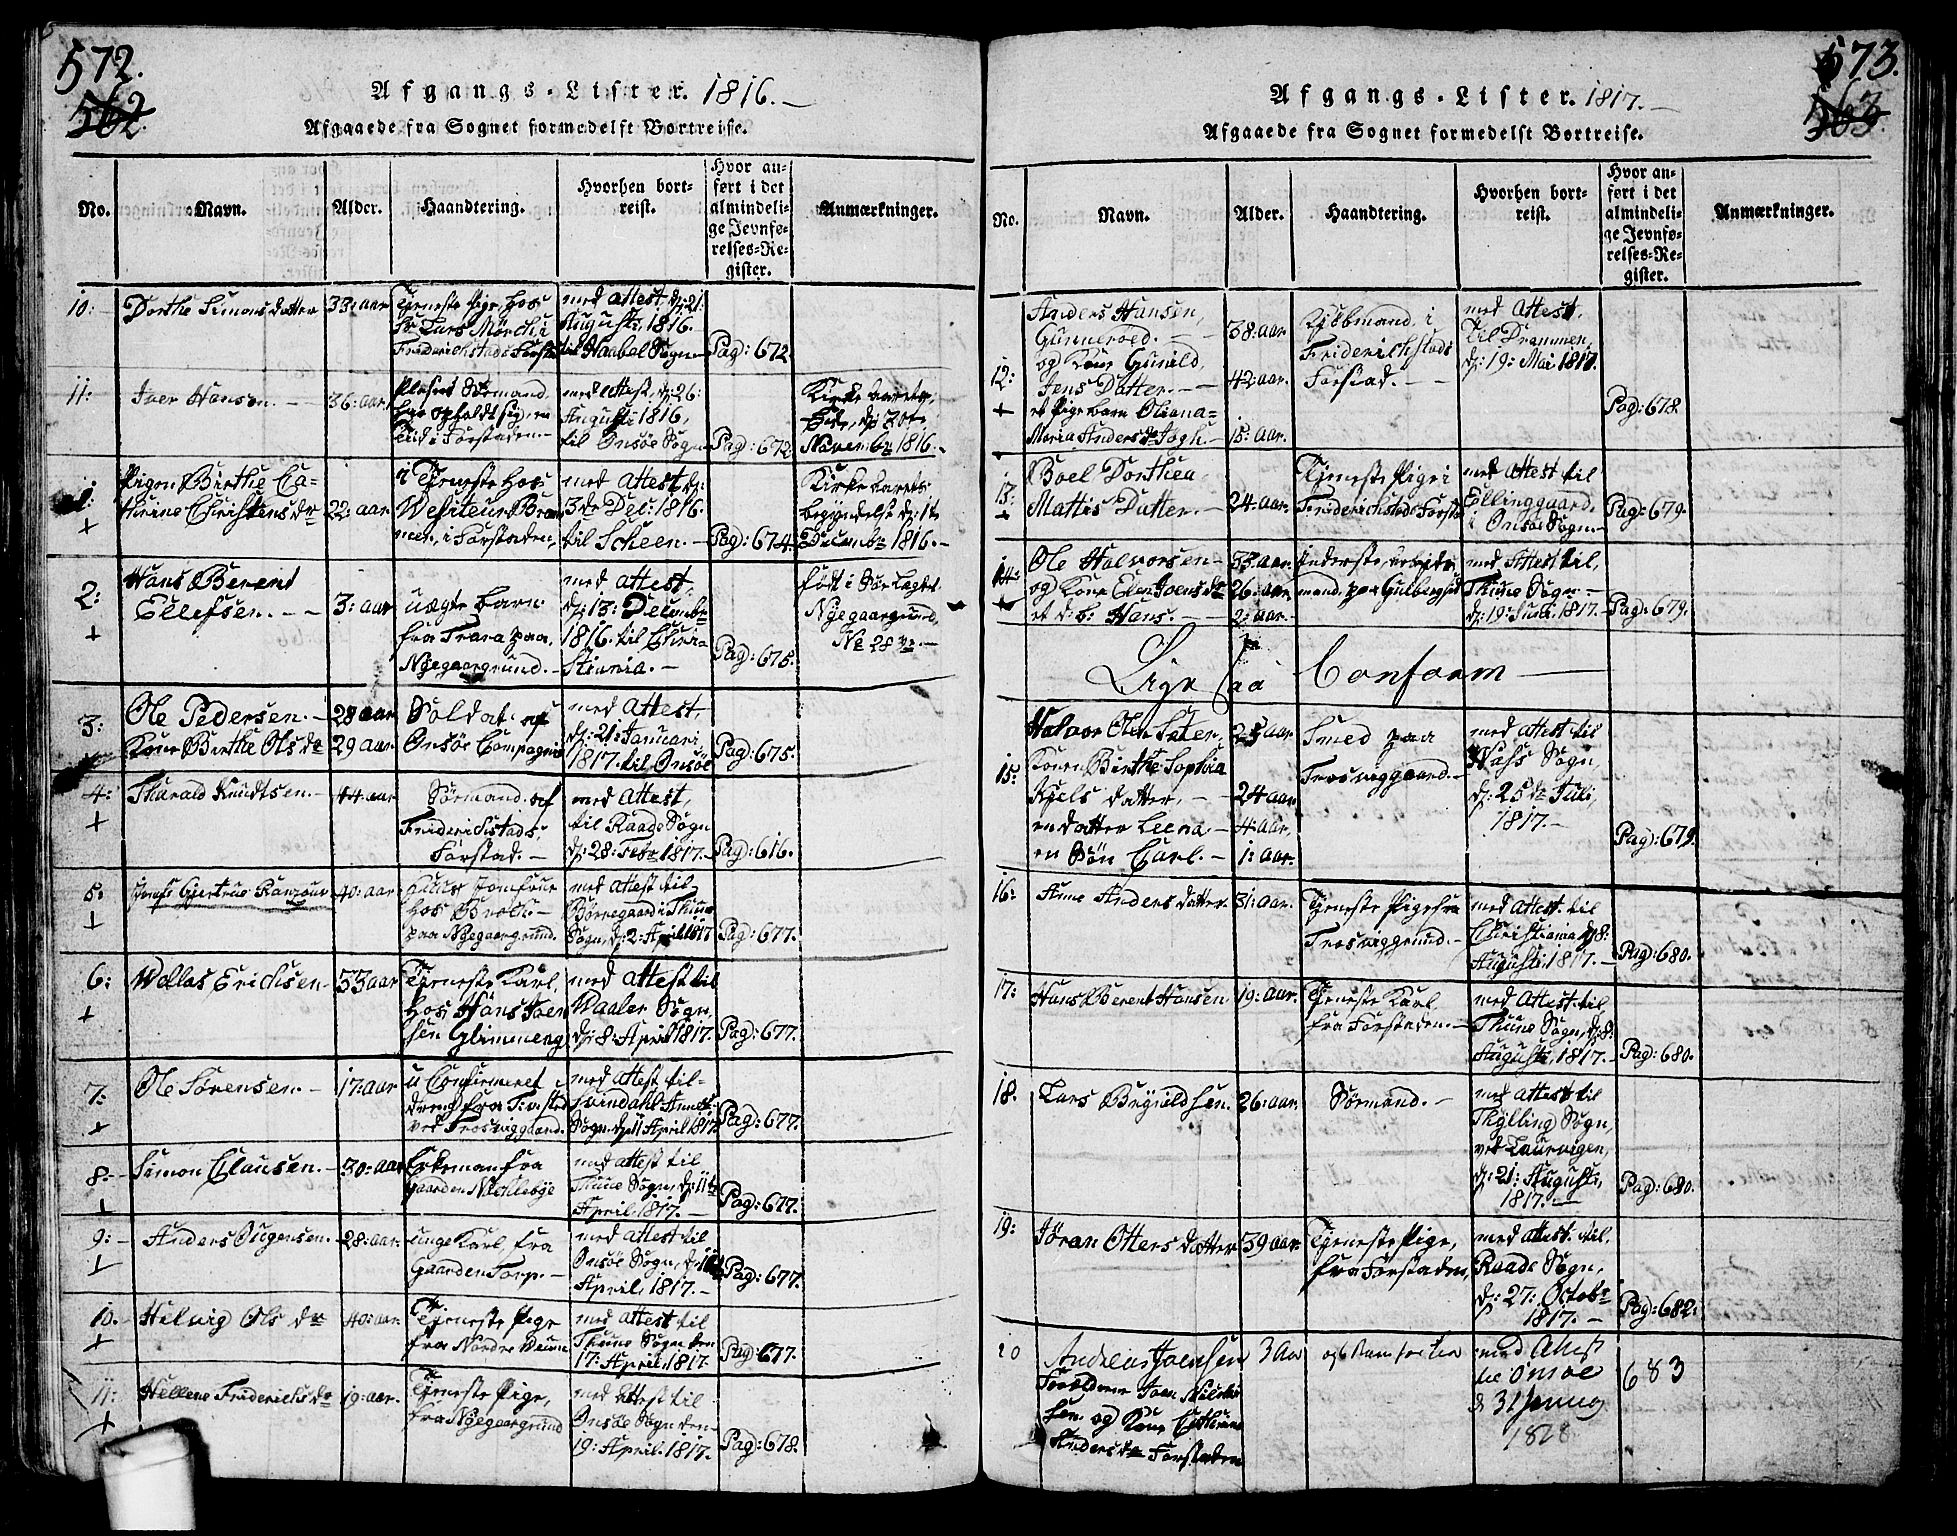 572.
562
Afgangs-Lister. 1816.
Afgaaede fra Sognet formedelst Bortreise.
No.
Navn.
Alder.
Haandtering.
Hvorhen bort-
reist.
Hvor an-
ført i det
almindeli-
ge Jevnfø-
relses-Re-
gister.
Anmærkninger.
10:
Dorthe Simons datter
33: aar
Tjeneste Pige, hos
Sr Lars Mörch i
Friderichstads Forstad
med attest, d: 21:
Augusti 1816.
til Haabel Sogn
Pag: 672
11:
Iver Hansen.
36: aar
Sömand,
har opholdt sig en
Tid i Forstaden
med attest, d: 26:
Augusti 1816,
til Onsöe Sogn
Pag: 672
November 1816.
1:
+
Pigen Birthe Ca-
thrine Christens dr
22: aar
i Tjeneste hos
i Forstaden,
med attest d:
3de Dec: 1816.
til Scheen.
Pag: 674.
Decembr 1816.
2:
+
Hans Berent
Ellefsen.
3: aar
uægte barn
fra Trara paa
Nyegaargrund.
med attest,
d: 13: Decembr
1816. til Chri-
stiania.
Pag: 675.
född i
Nyegaargrund,
No 28
3:
Ole Pedersen.
Kone Birthe Ols dr
28 aar
29 aar
Soldat af
Onsöe Compagnie
med attest,
d: 21: Januari
1817. til Onsöe
Pag: 675.
4:
+
Tharald Knudtsen.
44 aar
Sörmand af
Friderichstads
Forstad.
med attest,
til Raade Sogn
d: 28: Febr 1817.
Pag: 616.
5:
+
Jomfr Giertrue Ranzour
40: aar
Huus Jomfrue
hos
paa Nyegaargrund.
med attest til
Börregaard i Thune
Sogn, d: 2: April 1817
Pag: 677.
6:
+
Wollas Erichsen
53 aar
Tjeneste Karl,
hos Hans Joen-
sen Glimmeng
med attest til
Waaler Sogn,
d: 8: April 1817.
Pag: 677.
7:
+
Ole Sörensen.
17: aar
u Confirmeret
dreng fra
ved Trosviggaard.
med attest til
Svindahl Annex
Sogn, d: 11 April 1817
Pag: 677.
8:
+
Simon Clausen.
30: aar
fra
Gaarden
med attest til
Thune Sogn, d: 11te
April 1817.
Pag: 677.
9:
Anders Jürgensen.
28: aar.
unge Karl, fra
Gaarden Torp.
med attest til
Onsöe Sogn, d:
April, 1817.
Pag: 677.
10.
+
Helvig Ols dr
40: aar.
Tjeneste Pige
fra Nordre
med attest til
Thune Sogn den
17: April 1817.
Pag: 677.
11:
+
Hellene Friderichs dr
19: aar.
Tjeneste Pige,
fra Nyegaargrund
med attest til
Onsöe Sogn den
19: April 1817.
Pag: 678.
573.
563.
Afgangs-Lister. 1817.
Afgaaede fra Sognet formedelst Bortreise.
No.
Navn.
Alder.
Haandtering.
Hvorhen bort-
reist.
Hvor an-
ført i det
almindeli-
ge Jevnfø-
relses-Re-
gister.
Anmærkninger.
12:
+
Anders Hansen,
Gunneröed.
og Kone Gunild
Jens Datter.
et Pige barn Oliana
Maria Anders dr
38: aar.
42 aar.
15: aar.
Kjöbmand, i
Friderichstads
Forstad.
med attest,
til Drammen,
d: 19: Mai 1817.
Pag: 678.
13:
+
Boel Dorthea
Mattis Datter.
24: aar.
Tjeneste Pige i
Friderichstads Forstad
med attest til
Ellinggaard
i Onsöe Sogn.
Pag: 679.
14:
+
Ole Halvorsen
og Kone Elen Joens dr
et d. b: Hans.
33: aar.
26: aar.
2: aar.
Inderste, arbeids
mand, paa Gulbergsid
med attest til,
Thune Sogn
d: 19: Juli 1817.
Pag: 679.
Ligesaa Confoorm
15:
Halvor Olsen Sæter,
Konen Birthe Sophia
Kjels datter,
en datter Leena
en Sön Carl.
25 aar.
24 aar.
4 aar.
1: aar.
Smed paa
Trosviggaard.
med attest til
Wahs Sogn,
d: 25de Juli,
1817.
Pag: 679.
16:
Anne Anders datter
31: aar.
Tjeneste Pige fra
Trosviggrund.
med attest til
Christiania d: 8:
Augusti 1817.
Pag: 680.
17:
Hans Berent Hansen
19: aar.
Tjeneste Karl
fra Forstaden.
med attest til
Thune Sogn, d: 8:
Augusti, 1817.
Pag: 680.
18.
Lars Brynildsen.
26: aar.
Sörmand.
med attest til
Thÿlling Sogn,
ved Laurvigen,
d: 21: Augusti,
1817.
Pag: 680.
19:
Jöran Otters datter
39 aar.
Tjeneste Pige,
fra Forstaden,
med attest til,
Raade Sogn,
d: 27: Octobr
1817.
Pag: 682:
20
Andreas Joensen
Forældrene Joen
sen og Kone Cathrine
Anders dr Forstaden
3 Aar
med Attest
til Onsöe
d 31 Januar
1818
683